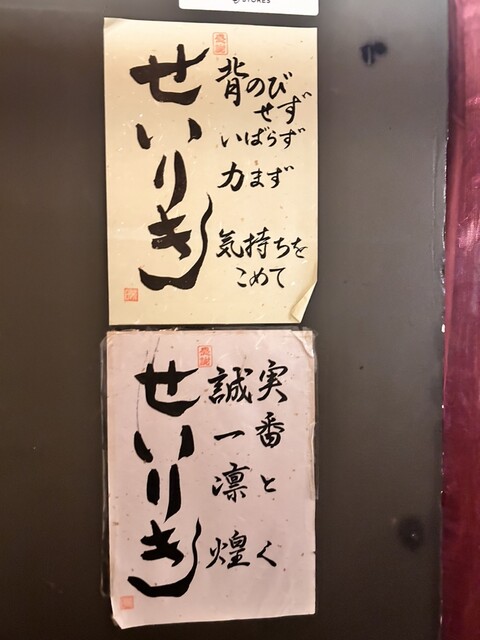 STORES
感謝
背のび
せず
いばらず
力まず
気持ちを
こめて
せいりき
感謝
誠実
一番
凛と
煌く
せいりき